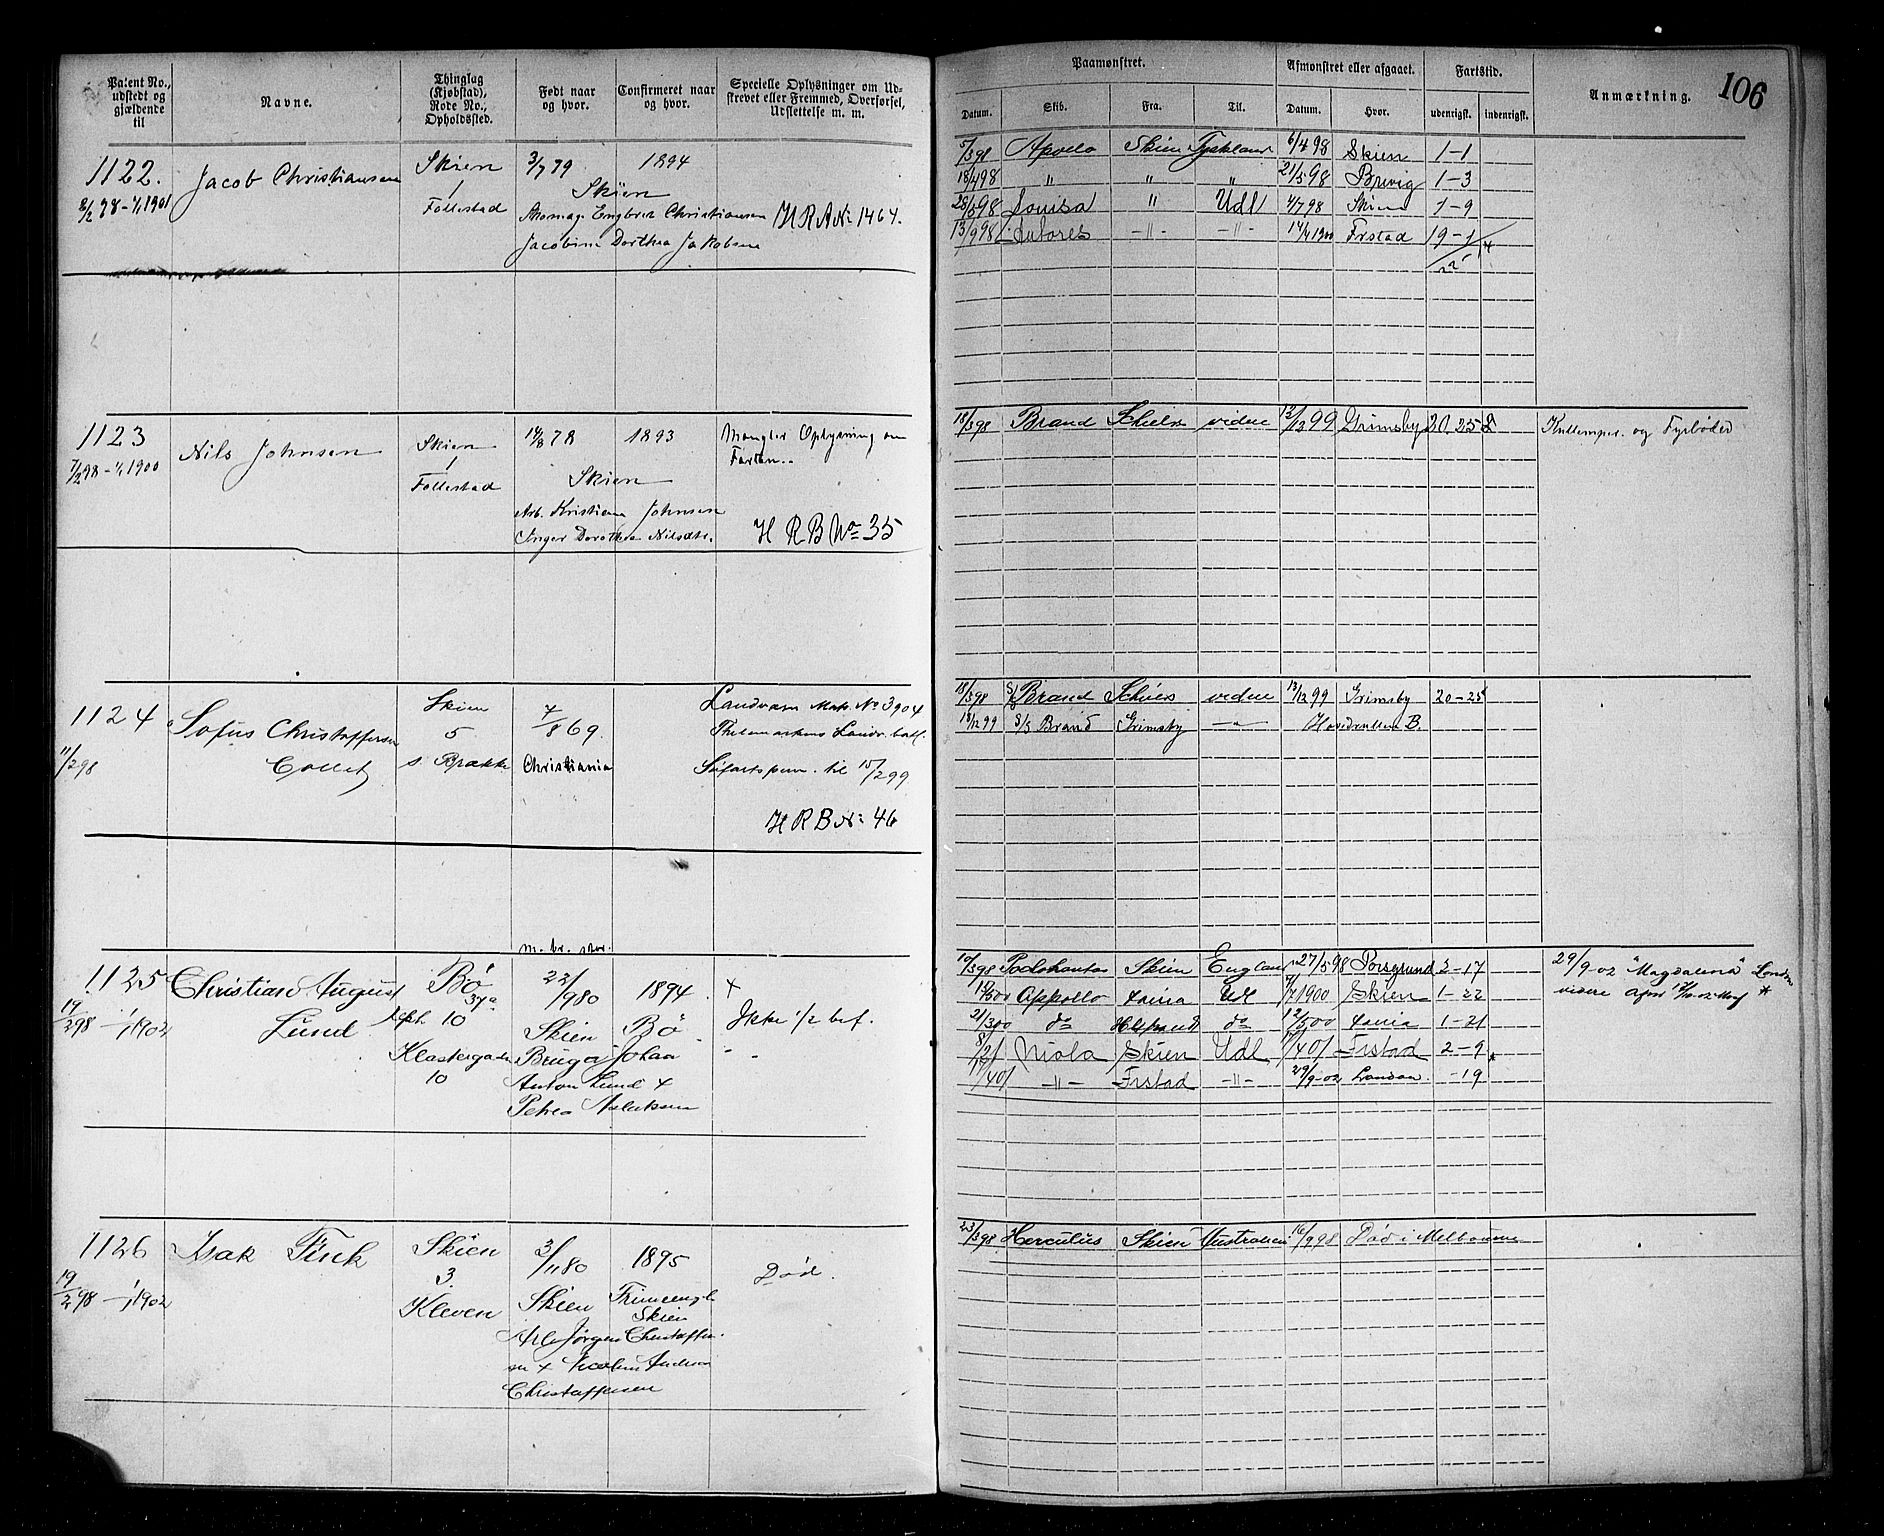 Patent No., udstedt og gjældende til
Navne.
Thinglag (Kjøbstad), Rode No., Opholdssted.
Født naar og hvor.
Confirmeret naar og hvor.
Specielle Oplysninger om Udskrevet eller Fremmed, Overførsel, Udslettelse m. m.
1122.
2/2 98 - 1/1 1901
Jacob Christiansen
Skien
1
Follestad
3/7 79
1894
Skien
Engbret Christiansen
Jacobine Dorthea Jakobsen
H R A No 1464.
1123
7/2 98 - 1/1 1900
Nils Johnsen
Skien
1
Follestad
14/8 78
1893
Skien
Arb. Kristian Johnsen
Inger Dorothea Nilsdtr.
Mangler Oplysning om
Farten..
H R B No 35
1124
11/2 98
Sofus Christoffersen
Collet
Skien
5
s. Brække
7/8 69.
Christiania
Landværn Matr. No 3904
Thelemarkens Landv. batl.
Søfartsperm. til 15/2 99
H R B No 46
m. br. stor.
1125
19/2 98 - 1/1 1902
Christian August
Lund
Bø
37a
10
Klostergaden
10
22/9 80
1894
Skien Bø
Johan
Anton Lund &
Petrea Aslaksen
+
Ikke 1/2 bef.
" "
1126
19/2 98 - 1/1 1902
Isak Fink
Skien
3.
Kleven
3/11 80
1895
Skien
Skien
Jørgen Christoffer-
sen &
Christoffersen
Død.
106
Paamønstret.
Afmønstret eller afgaaet.
Fartstid.
Anmærkning.
Datum.
Skib.
Fra.
Til.
Datum.
Hvor.
udenrigsk.
indenrigsk.
5/3 98 Apollo Skien Tyskland 6/4 98 Skien 1-1
18/4 98 " " " 21/5 98 Brevig 1-3
28/5 98 Louisa " Udl 4/7 98 Skien 1-9
13/9 98 -"- -"- 14/4 1900 Frstad 19-1
22
18/3 98 Brand videre 13/12 99 Grimsby 20. 25
Kullemper. og Fyrbøder
18/3 98 S/S Brand videre 13/12 99 Grimsby 20-25
13/12 99 S/S Brand Grimsby -"- Hovedrullen B.
10/3 98 Skien England 27/5 98 Porsgrund 2-17
29/9-02 "Magdalena" London
Appollo Udl 1900 Skien 1-22
videre
*
21/3 00 do do 12/5 00 1-21
Niola Skien Udl 4 01 Frstad 2-9 *
4 01 -"- Frstad -"- 29/9-02 London. -19
23/3 98 Herculus Skien Australien 16/9 98 Død i Melbourne